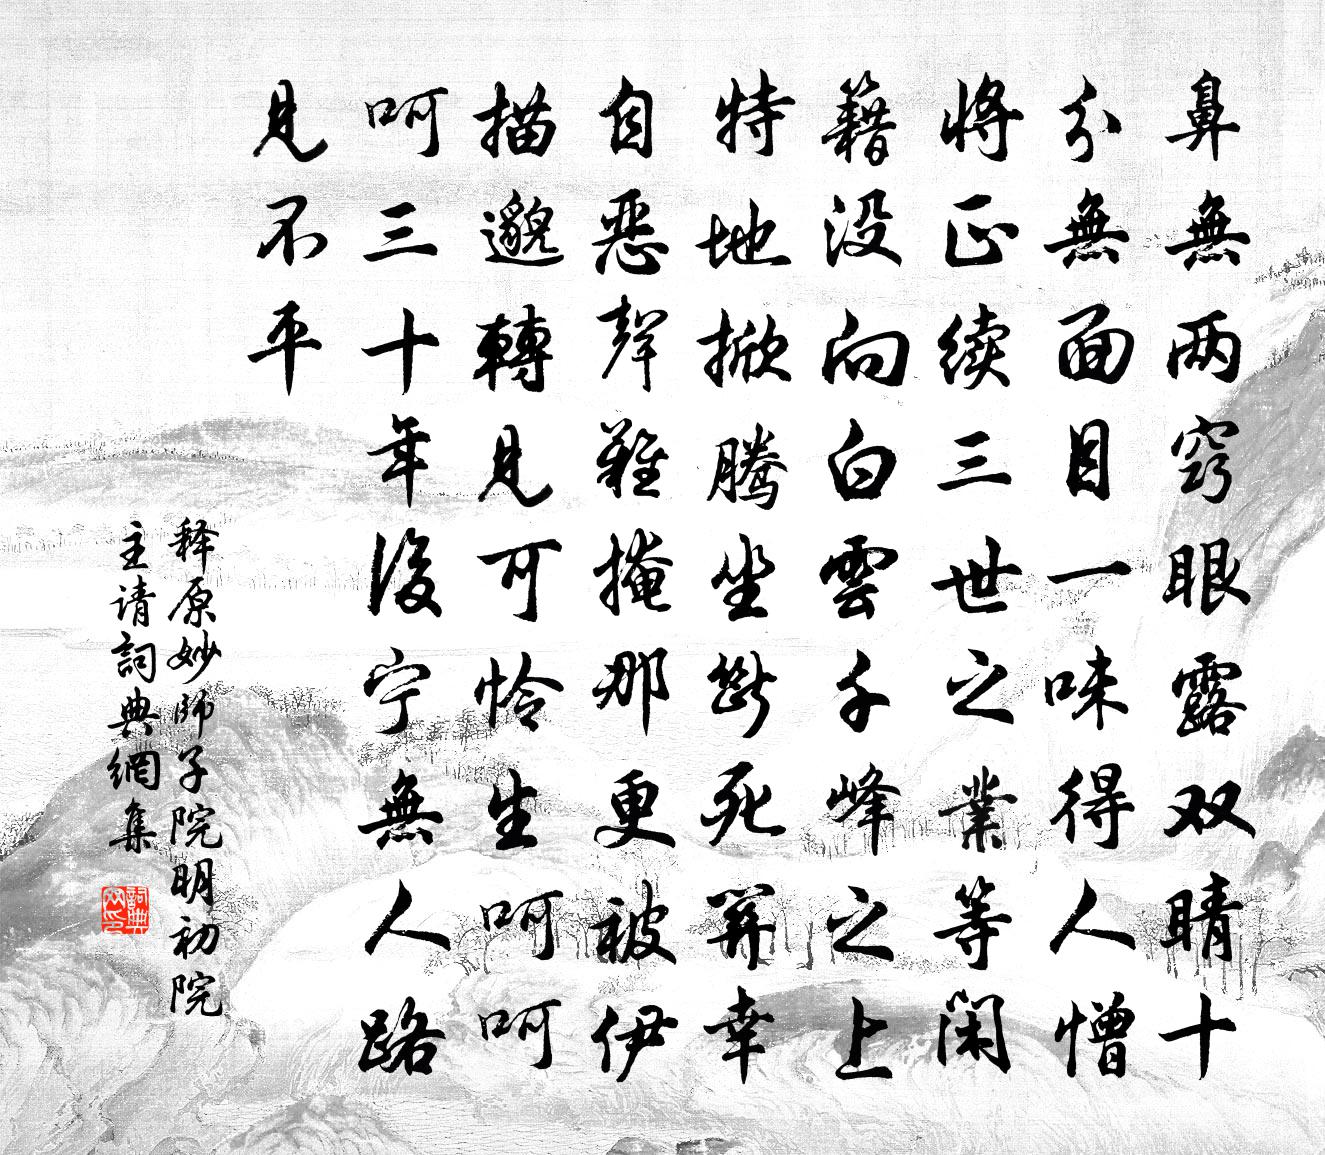 鼻無两窍眼露双睛十
分無面目一味得人憎
将正续三世之業等閑
籍没向白雲千峰之上
特地掀腾坐斷死關幸
自恶聲難掩那更被伊
描邈轉見可怜生呵呵
呵三十年後宁無人路
見不平
释原妙师子院明初院
主请詞典網集
詞典网印